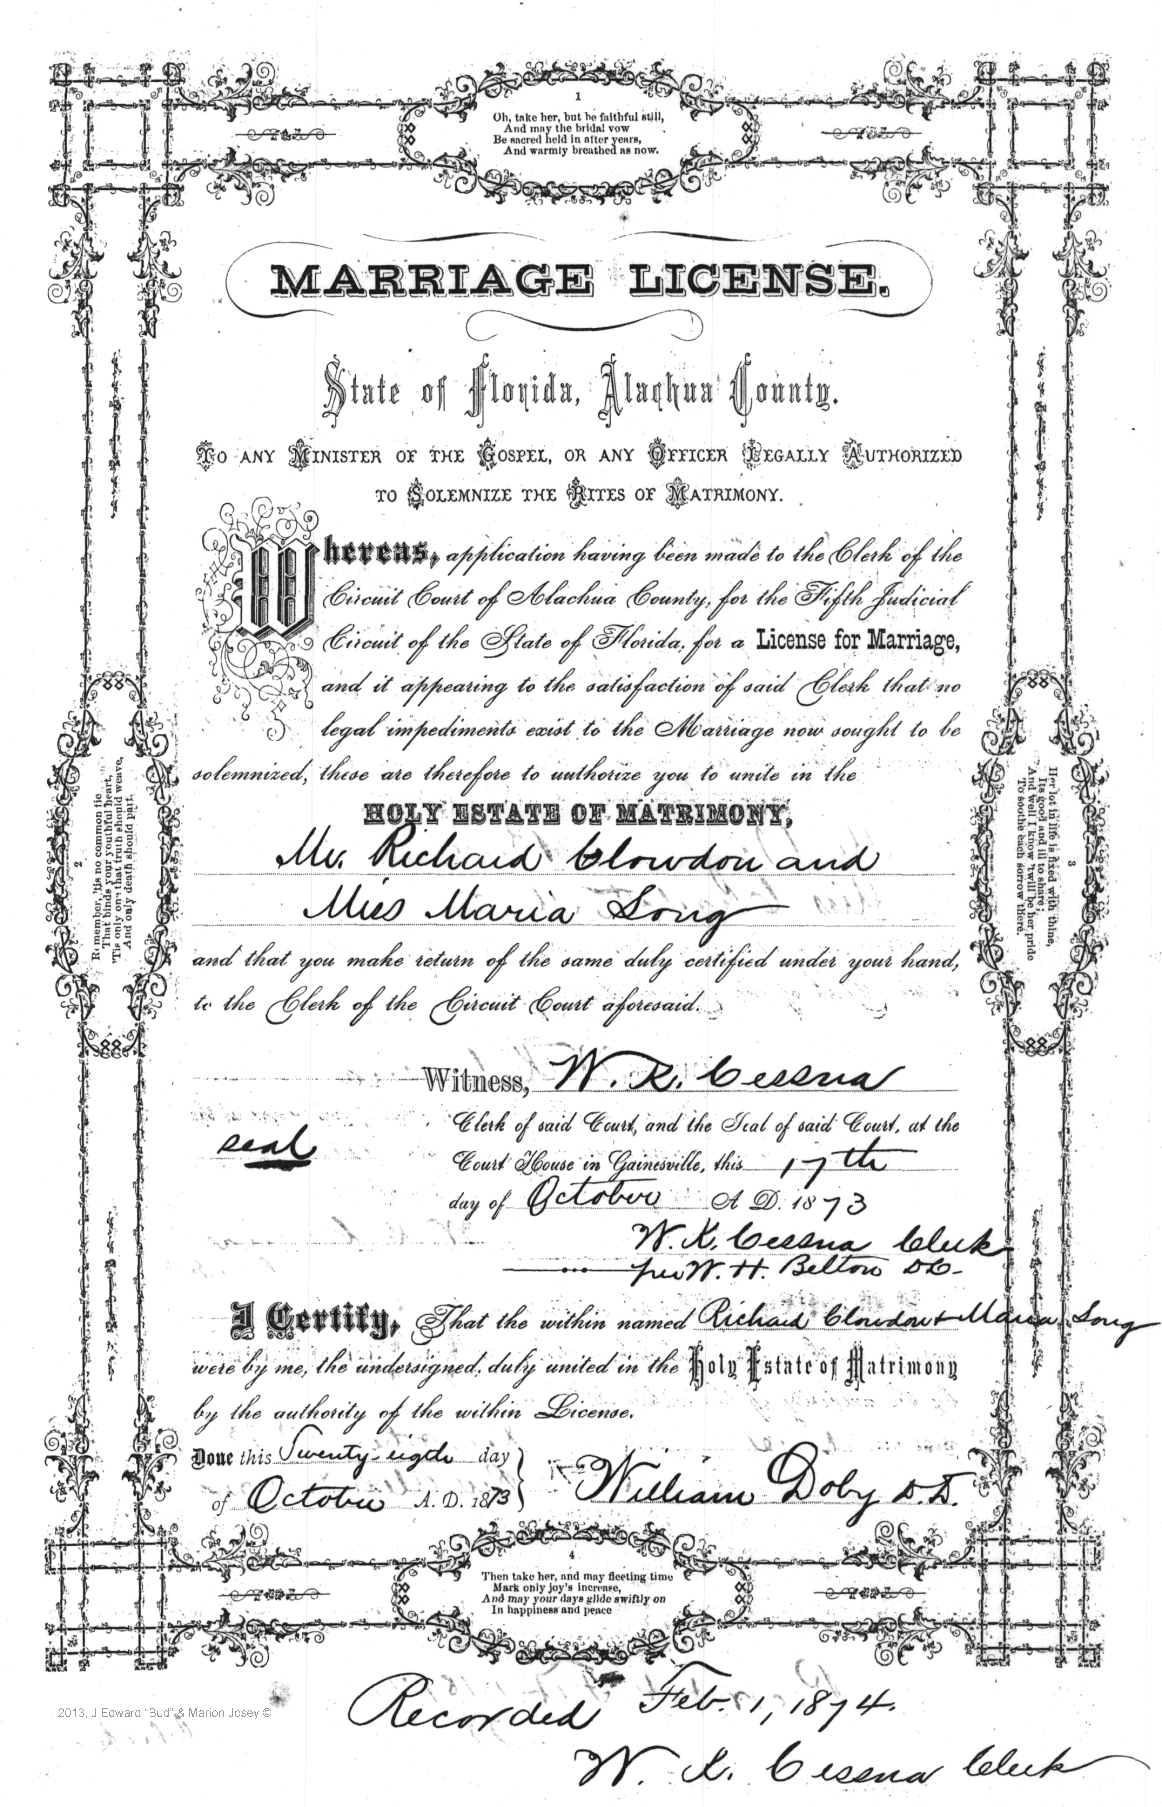 1
Oh, take her, but be faithful still,
And may the bridal vow
Be sacred held in after years,
And warmly breathed as now.
MARRIAGE LICENSE.
State of Florida, Alachua County.
TO ANY MINISTER OF THE GOSPEL, OR ANY OFFICER LEGALLY AUTHORIZED
TO SOLEMNIZE THE RITES OF MATRIMONY.
Whereas, application having been made to the Clerk of the
Circuit Court of Alachua County, for the Fifth Judicial
Circuit of the State of Florida, for a License for Marriage,
and it appearing to the satisfaction of said Clerk that no
legal impediments exist to the Marriage now sought to be
solemnized, these are therefore to authorize you to unite in the
HOLY ESTATE OF MATRIMONY,
Mr. Richard Clowdon and
Miss Maria Song
and that you make return of the same duly certified under your hand,
to the Clerk of the Circuit Court aforesaid.
Witness, W. K. Cessna
Clerk of said Court, and the Seal of said Court, at the
seal
Court House in Gainesville, this 17th
day of October A D. 1873
W. K. Cessna Clerk
per W. H. Belton D C
I Certify, That the within named Richard Clowdon & Maria Song
were by me, the undersigned, duly united in the Holy Estate of Matrimony
by the authority of the within License.
Done this Twenty-eigth day
of October A. D. 1873
William Doby D. D.
2
Remember, 'tis no common tie
That binds your youthful heart,
'Tis only one that truth should weave,
And only death should part.
3
Her lot in life is fixed with thine,
Its good and ill to share;
And well I know 'twill be her pride
To soothe each sorrow there.
4
Then take her, and may fleeting time
Mark only joy's increase,
And may your days glide swiftly on
In happiness and peace
Recorded Feb. 1, 1874.
W. K. Cessna Clerk
2013, J Edward "Bud" & Marion Josey ©